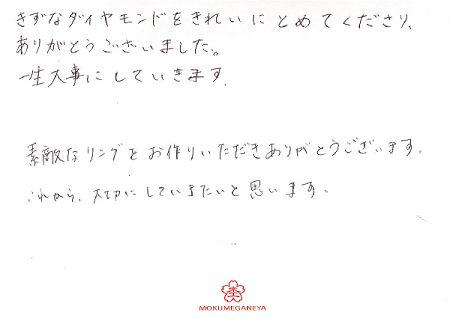 きずなダイヤモンドをきれいにとめてくださり、
ありがとうございました。
一生大事にしていきます。
素敵なリングをお作りいただきありがとうございます。
これから、大切にしていきたいと思います。
MOKUMEGANEYA